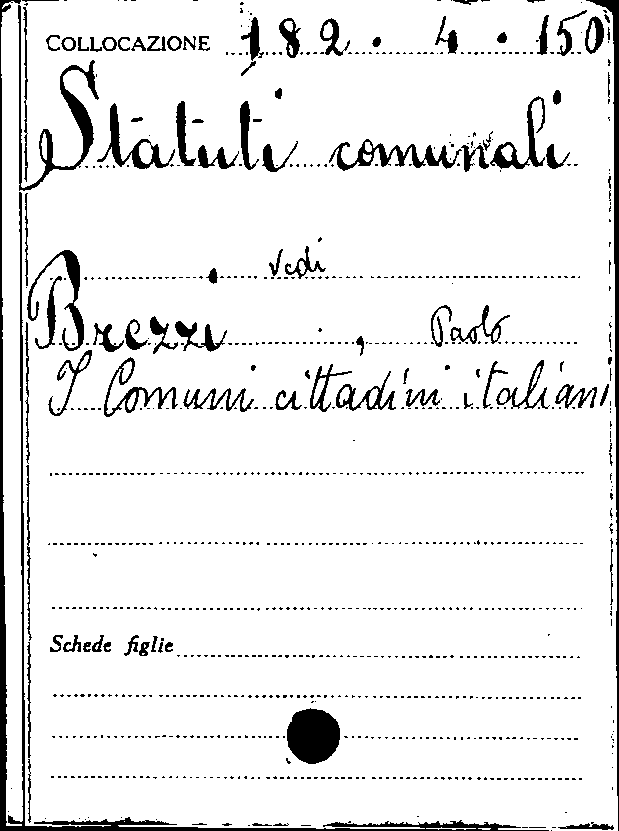 COLLOCAZIONE 182 · 4 · 150
Statuti comunali
. Vedi
Brezzi , Paolo
I Comuni cittadini italiani
Schede figlie